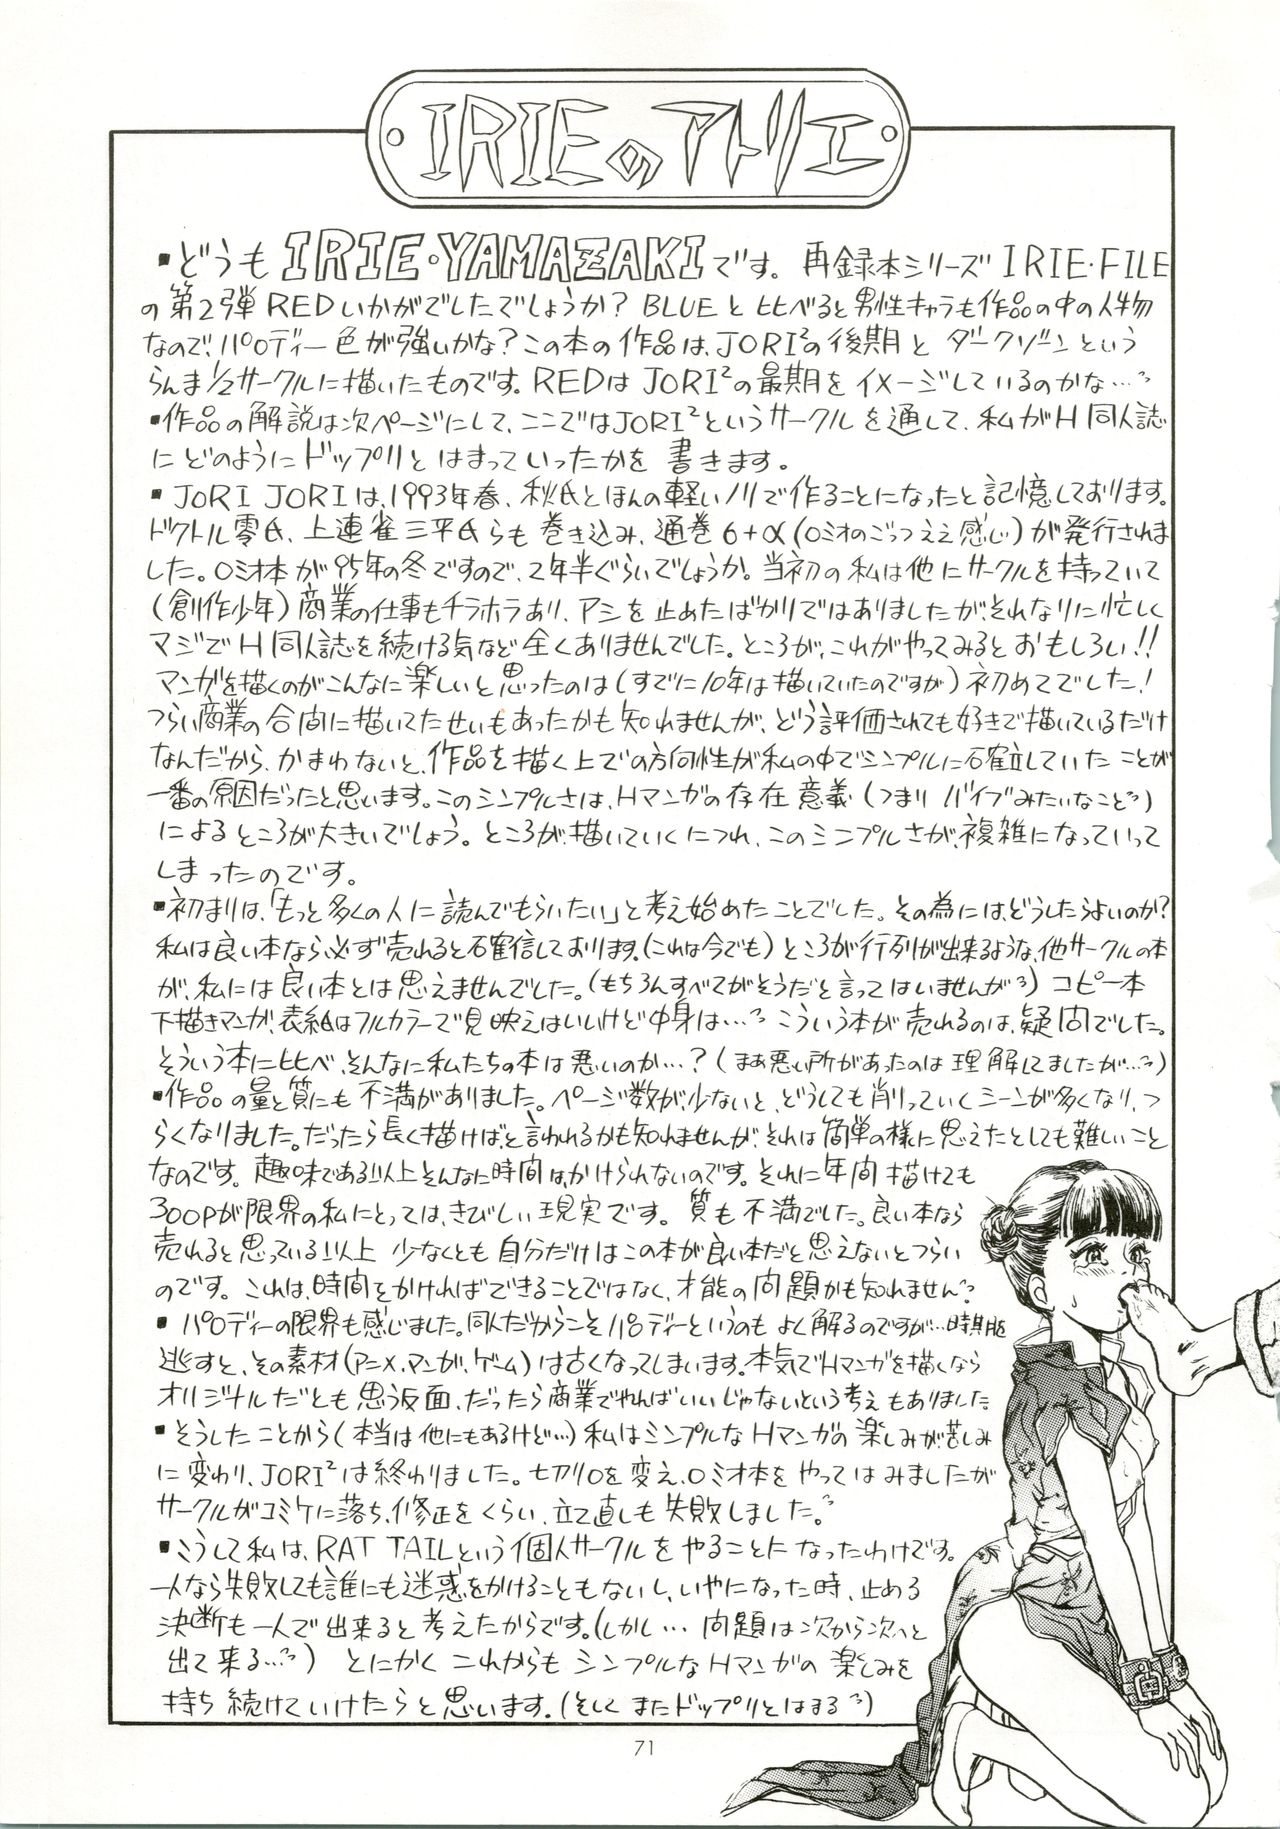 IRIEのアトリエ
▪どうもIRIE・YAMAZAKIです。再録本シリーズIRIE・FILE
の第2弾REDいかがでしたでしょうか？BLUEと比べると男性キャラも作品の中の人物
なので、パロディー色が強いかな？この本の作品は、JORI²の後期とダークゾーンという
らんま1/2サークルに描いたものです。REDはJORI²の最期をイメージしているのかな…
▪作品の解説は次ページにして、ここではJORI²というサークルを通して、私がH同人誌
にどのようにドップリとはまっていったかを書きます。
▪JORI JORIは、1993年春、秋氏とほんの軽いノリで作ることになったと記憶しております。
ドクトル零氏、上連雀三平氏らも巻き込み、通巻6+α(ロミオのごっつええ感じ)が発行されま
した。ロミオ本が95年の冬ですので、2年半ぐらいでしょうか。当初の私は他にサークルを持っていて
(創作少年)商業の仕事もチラホラあり、アシを止めたばかりではありましたが、それなりに忙しく
マジでH同人誌を続ける気など全くありませんでした。ところが、これがやってみるとおもしろい!!
マンガを描くのがこんなに楽しいと思ったのは(すでに10年は描いていたのですが)初めてでした!
つらい商業の合間に描いてたせいもあったかも知れませんが、どう評価されても好きで描いているだけ
なんだから、かまわないと、作品を描く上での方向性が私の中でシンプルに確立していたことが
一番の原因だったと思います。このシンプルさは、Hマンガの存在意義(つまりバイブみたいなこと)
によるところが大きいでしょう。ところが、描いていくにつれ、このシンプルさが、複雑になっていって
しまったのです。
▪初まりは、「もっと多くの人に読んでもらいたい」と考え始めたことでした。その為には、どうしたらよいのか?
私は良い本なら必ず売れると確信しております。(これは今でも)ところが行列が出来るような、他サークルの本
が、私には良い本とは思えませんでした。(もちろんすべてがそうだと言ってはいませんが)コピー本
下描きマンガ、表紙はフルカラーで見映えはいいけど中身は…こういう本が売れるのは、疑問でした。
そういう本に比べ、そんなに私たちの本は悪いのか…?(まあ悪い所があったのは理解してましたが…)
▪作品の量と質にも不満がありました。ページ数が、少ないと、どうしても削っていくシーンが多くなり、つ
らくなりました。だったら長く描けば、と言われるかも知れませんが、それは簡単の様に思えたとしても難しいこと
なのです。趣味である以上そんなに時間は、かけられないのです。それに年間描けても
300Pが限界の私にとっては、きびしい現実です。質も不満でした。良い本なら
売れると思っている以上少なくとも自分だけはこの本が良い本だと思えないとつらい
のです。これは、時間をかければできることではなく、才能の問題かも知れません。
▪パロディーの限界も感じました。同人だからこそパロディーというのもよく解るのですが…時期を
逃すと、その素材(アニメ、マンガ、ゲーム)は古くなってしまいます。本気でHマンガを描くなら
オリジナルだとも思う反面、だったら商業でやればいいじゃないという考えもありました
▪そうしたことから(本当は他にもあるけど…)私はシンプルなHマンガの楽しみが、苦しみ
に変わり、JORI²は終わりました。七刀り口を変え、ロミオ本をやってはみましたが
サークルがコミケに落ち、修正をくらい、立て直しも失敗しました。
▪こうして私は、RAT TAILという個人サークルをやることになったわけです。
一人なら失敗しても誰にも迷惑をかけることもないし、いやになった時、止める
決断も一人で出来ると考えたからです。(しかし…問題は次から次へと
出て来る…)とにかくこれからもシンプルなHマンガの楽しみを
持ち続けていけたらと思います。(そしてまたドップリとはまる)
71